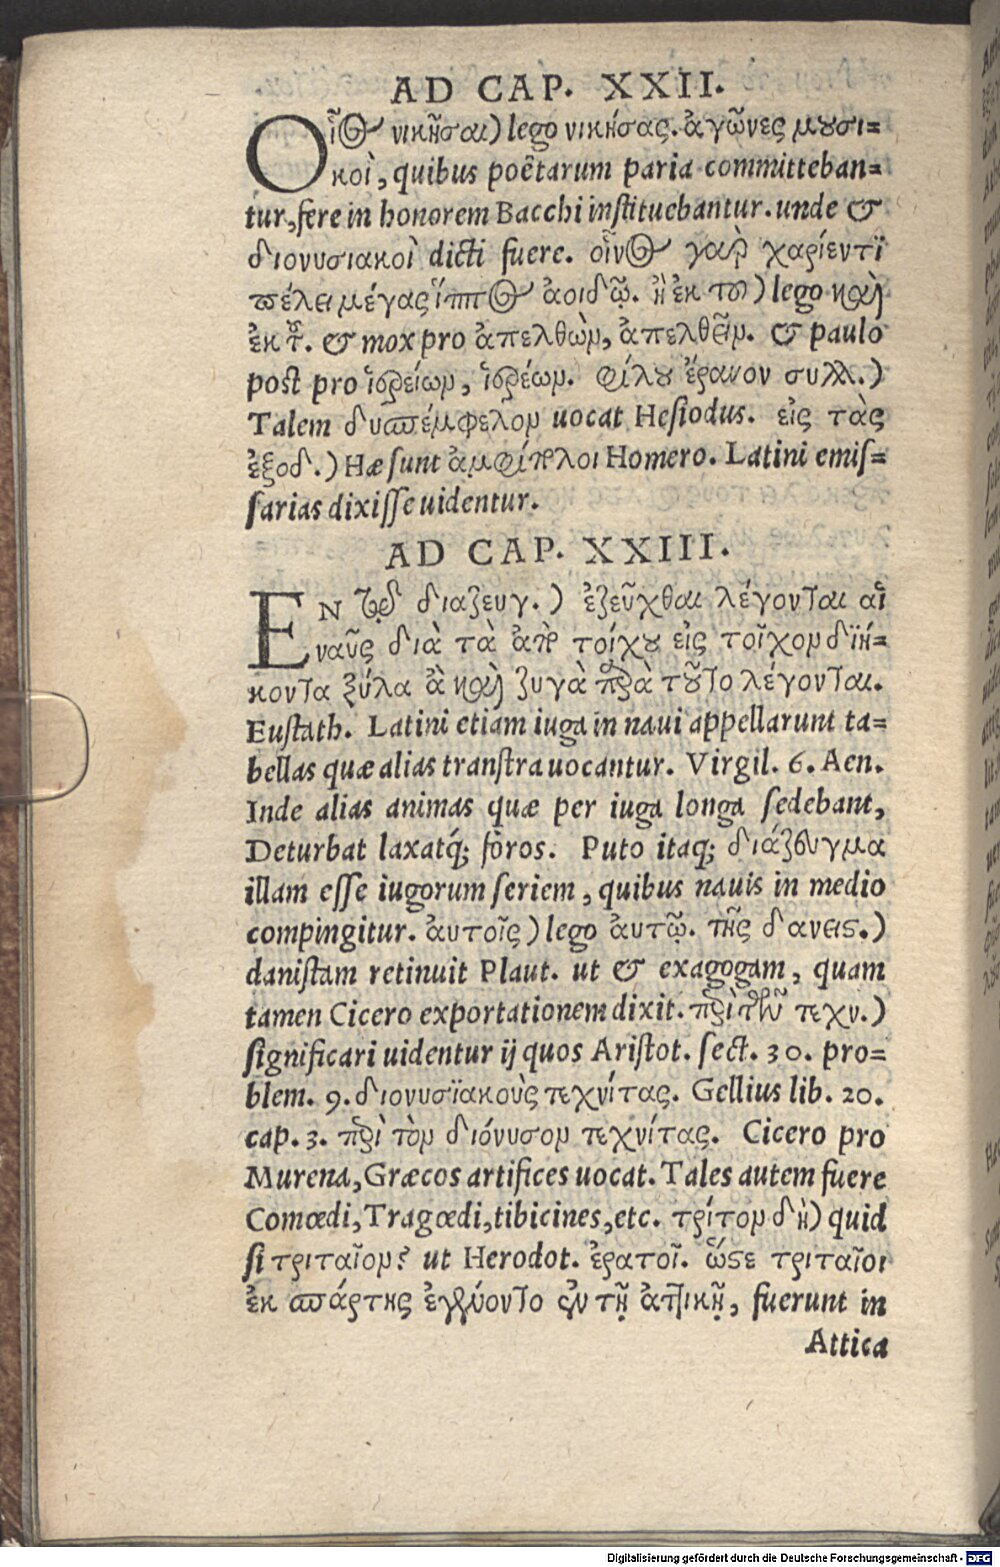 AD CAP. XXII.
Οἷος νικῆσαι) lego νικήσας. ἀγῶνες μουσι=
κοὶ, quibus poëtarum paria committeban=
tur, fere in honorem Bacchi instituebantur. unde &
διονυσιακοὶ dicti fuere. οἶνος γαρ χαρίεντι
πέλει μέγας ἵππος ἀοιδῷ. ἢ ἐκ το) lego καὶ
ἐκ τ. & mox pro ἀπελθὼν, ἀπελθεῖν. & paulo
post pro ἱερείων, ἱερέων. φίλου ἔρανον συλλ.)
Talem δυσπέμφελον uocat Hesiodus. εἰς τὰς
ἐξοδ.) Hæ sunt ἀμφίπολοι Homero. Latini emis=
sarias dixisse uidentur.
AD CAP. XXIII.
ΕΝ τῷ διαζευγ.) ἐζεῦχθαι λέγονται αἱ
ναῦς διὰ τὰ ἀπὸ τοίχου εἰς τοῖχον διή=
κοντα ξύλα ἃ καὶ ζυγὰ παρὰ τοῦτο λέγονται.
Eustath. Latini etiam iuga in naui appellarunt ta=
bellas quæ alias transtra uocantur. Virgil. 6. Aen.
Inde alias animas quæ per iuga longa sedebant,
Deturbat laxatq́; fôros. Puto itaq; διάζευγμα
illam esse iugorum seriem, quibus nauis in medio
compingitur. ἀυτοῖς) lego ἀυτῷ. τῆς δανεις.)
danistam retinuit Plaut. ut & exagogam, quam
tamen Cicero exportationem dixit. περὶ τὸν τεχν.)
significari uidentur ij quos Aristot. sect. 30. pro=
blem. 9. διονυσϊακοὺς τεχνίτας. Gellius lib. 20.
cap. 3. περὶ τὸν διόνυσον τεχνίτας. Cicero pro
Murena, Græcos artifices uocat. Tales autem fuere
Comœdi, Tragœdi, tibicines, etc. τρίτον δὴ) quid
si τριταῖον? ut Herodot. ἐρατοῖ. ὥστε τριταῖοι
ἐκ σπάρτης ἐγένοντο ἐν τῇ ἀττικῇ, fuerunt in
Attica
Digitalisierung gefördert durch die Deutsche Forschungsgemeinschaft - DFG